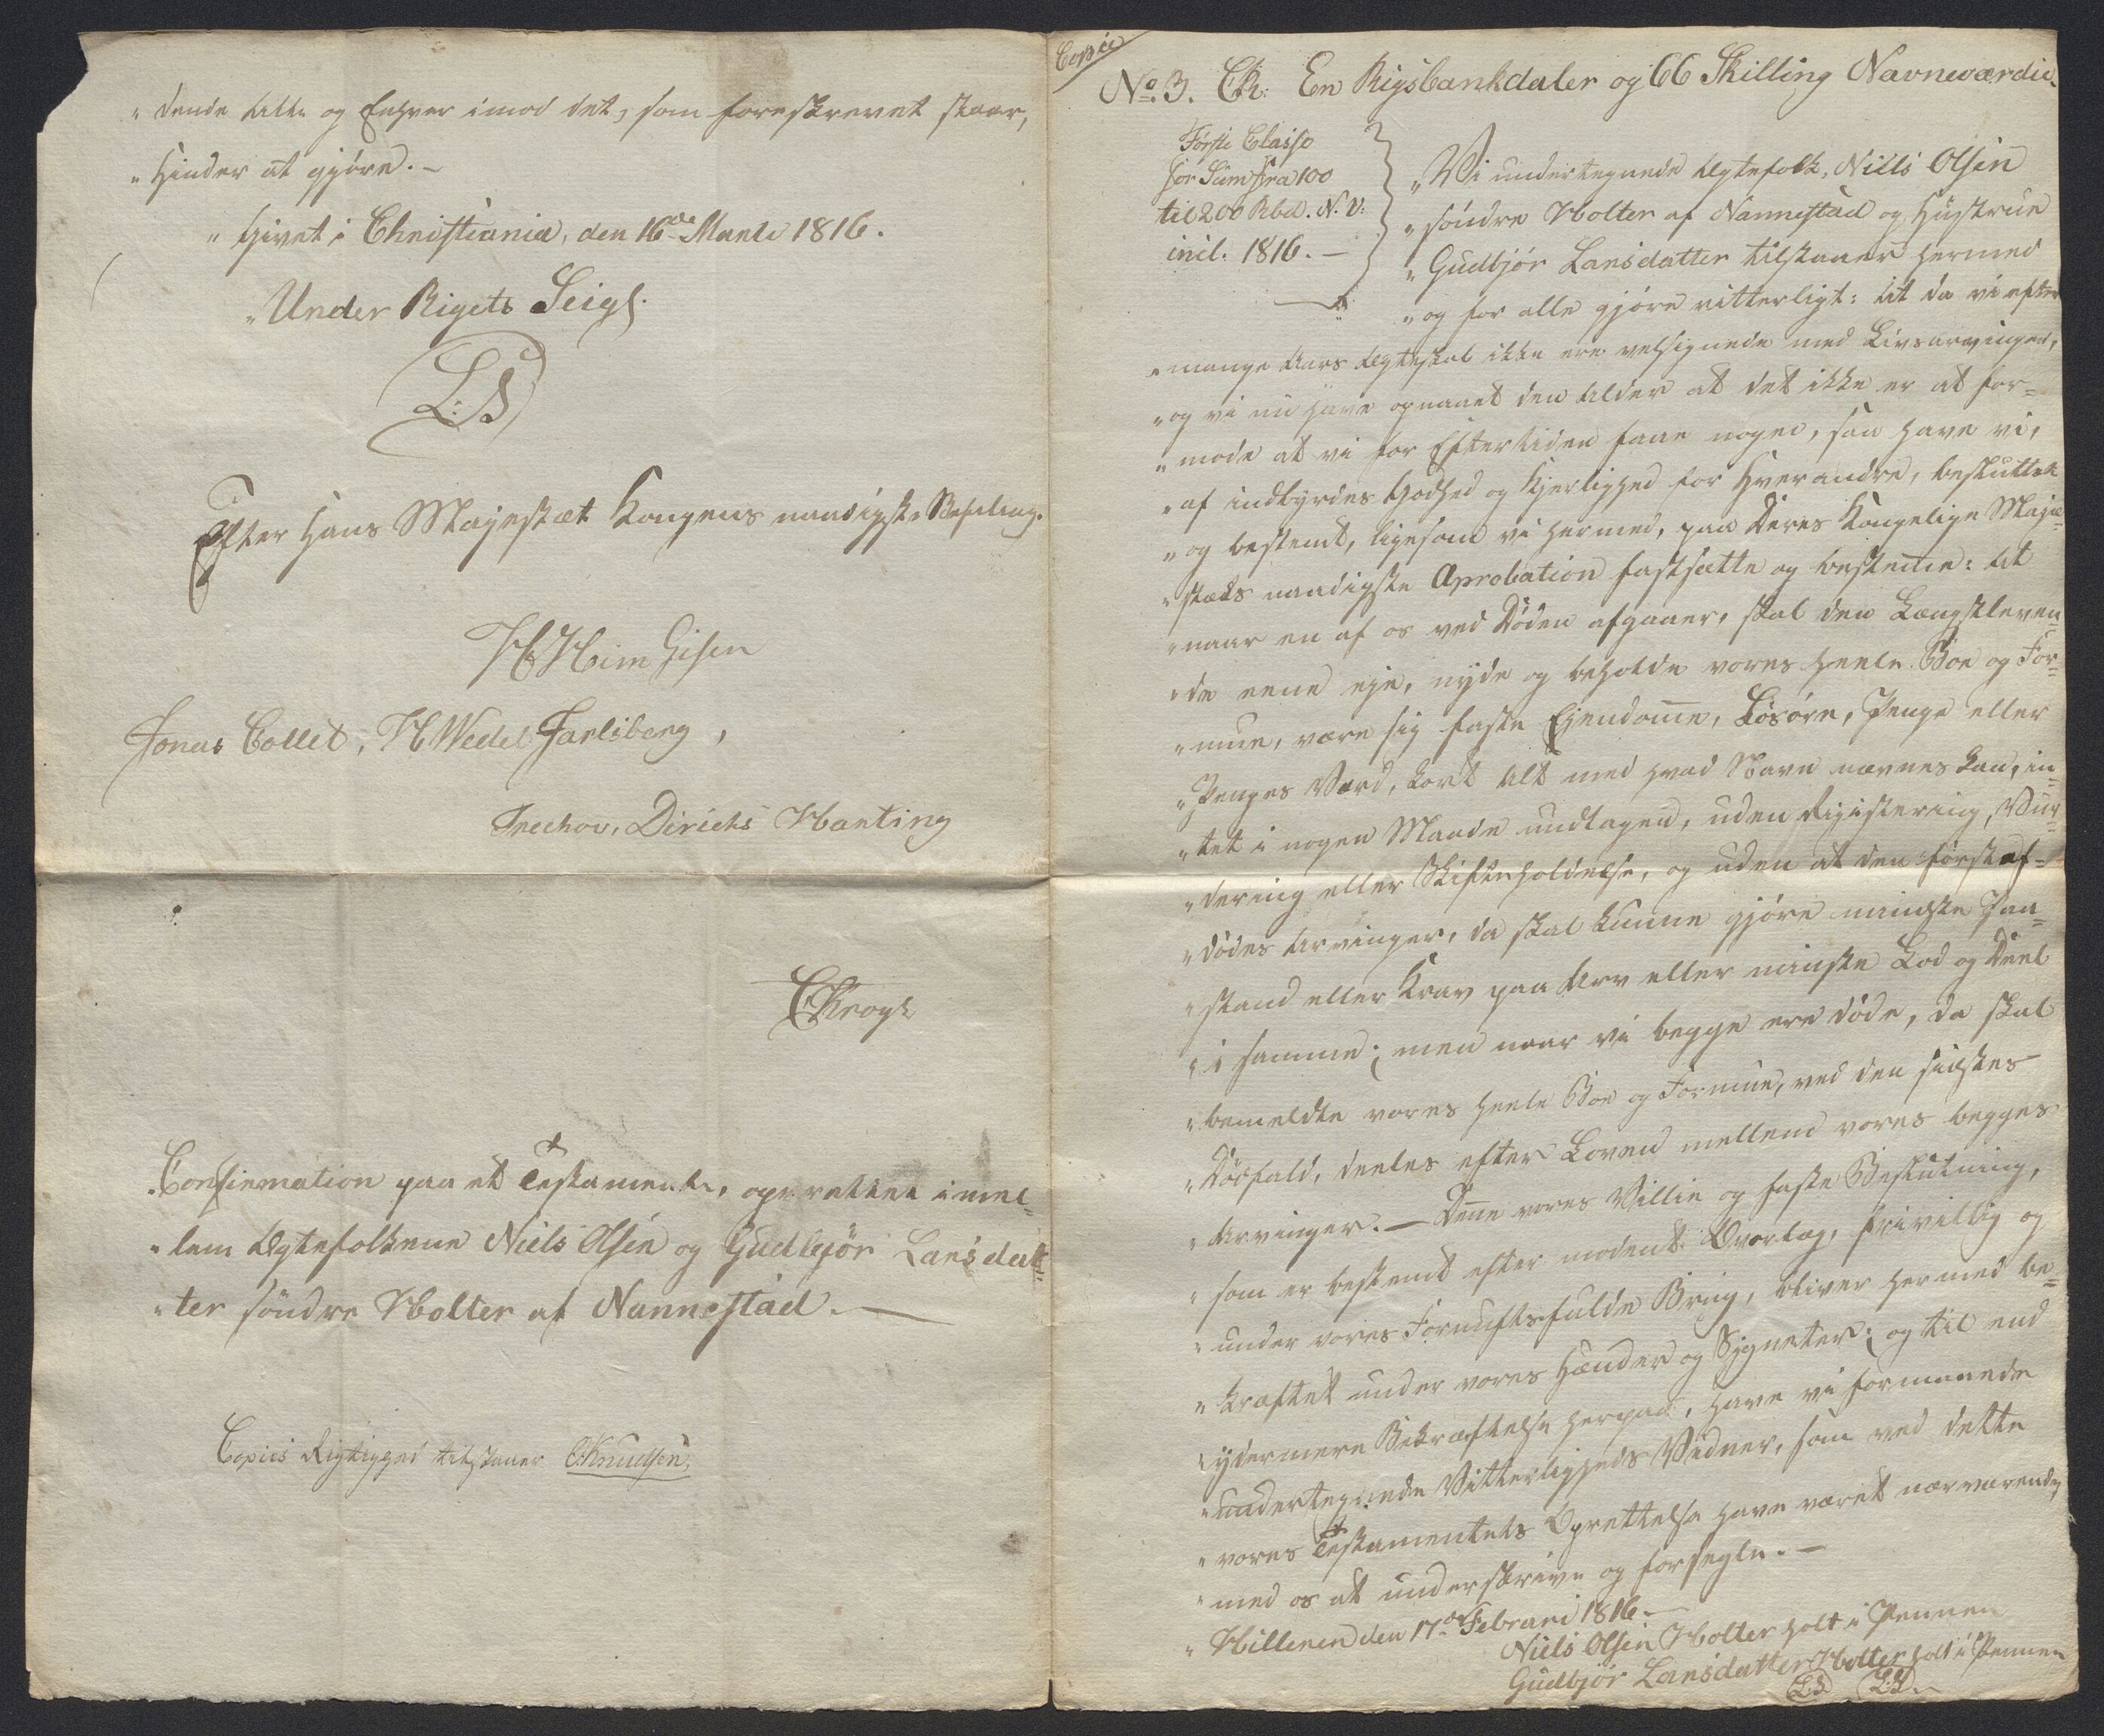 " dende Alle og Enhver imod det, som foreskrevet staar,
" Hinder at gjøre. -
" Givet i Christiania, den 16de Martii 1816.
" Under Rigets Seigl.
L.S.
Efter Hans Majestæt Kongens naadigste Befaling.
Jonas Collet, H Wedel Jarlsberg,
Treschov, Diriks Hanting
C Krogh
Confirmation paa et Testamente, oprettet imel=
" lem Ægtefolkene Niels Olsen og Gudbjør Larsdat=
" ter søndre Holter af Nannestad. —
Copiis Rigtighed tilstaaer C. Knudsen.
Copie
No. 3. Ch: En Rigsbankdaler og 66 Skilling Navneværdie.
Første Classe
for Sum fra 100
til 200 Rbd. N. V.
incl. 1816. —
" Vi undertegnede Ægtefolk, Niels Olsen
" søndre Holter af Nannestad og Hustrue
" Gudbjør Larsdatter tilstaaer hermed
" og for alle gjøre vitterligt: At da vi efter
" mange Aars Ægteskab ikke ere velsignede med Livsarvinger,
" og vi nu have opnaaet den Alder at det ikke er at for=
" mode at vi for Eftertiden faae nogen, saa have vi,
" af indbyrdes Godhed og Kjerlighed for Hverandre, besluttet
" og bestemt, ligesom vi hermed, paa Deres Kongelige Maje=
" stæts naadigste Aprobation fastsætte og bestemme: At
" naar en af os ved Døden afgaaer, skal den Længstleven=
" de eene eje, nyde og beholde vores heele Boe og For=
" mue, være sig faste Ejendomme, Løsøre, Penge eller
" Penges Værd, kort Alt med hvad Navn nævnes kan, in=
" tet i nogen Maade undtagen, uden Registering, Vur=
" dering eller Skifteholdelse, og uden at den først af=
" dødes Arvinger, da skal kunne gjøre mindste Paa=
" stand eller Krav paa Arv eller minste Lod og Deel
" i samme; men naar vi begge ere døde, da skal
" bemeldte vores heele Boe og Formue, ved den sidstes
" Dødfald, deeles efter Loven mellem vores begges
" Arvinger. — Denne vores Villie og faste Beslutning,
" som er bestemt efter modent Overlæg, frivillig og
" under vores Fornuftsfulde Brug, bliver hermed be=
" kræftet under vores Hænder og Signeter; og til end
" ydermere Bekræftelse herpaa, have vi formaaede
" undertegnede Vitterligheds Vidner, som ved dette
" vores Testamentets Oprettelse have været nærværende,
" med os at underskrive og forsegle. —
" Hilleren den 17de Februari 1816. —
Niels Olsen Holter holt i Pennen
Gudbjør Larsdatter Holter holt i Pennen
L.S. L.S.